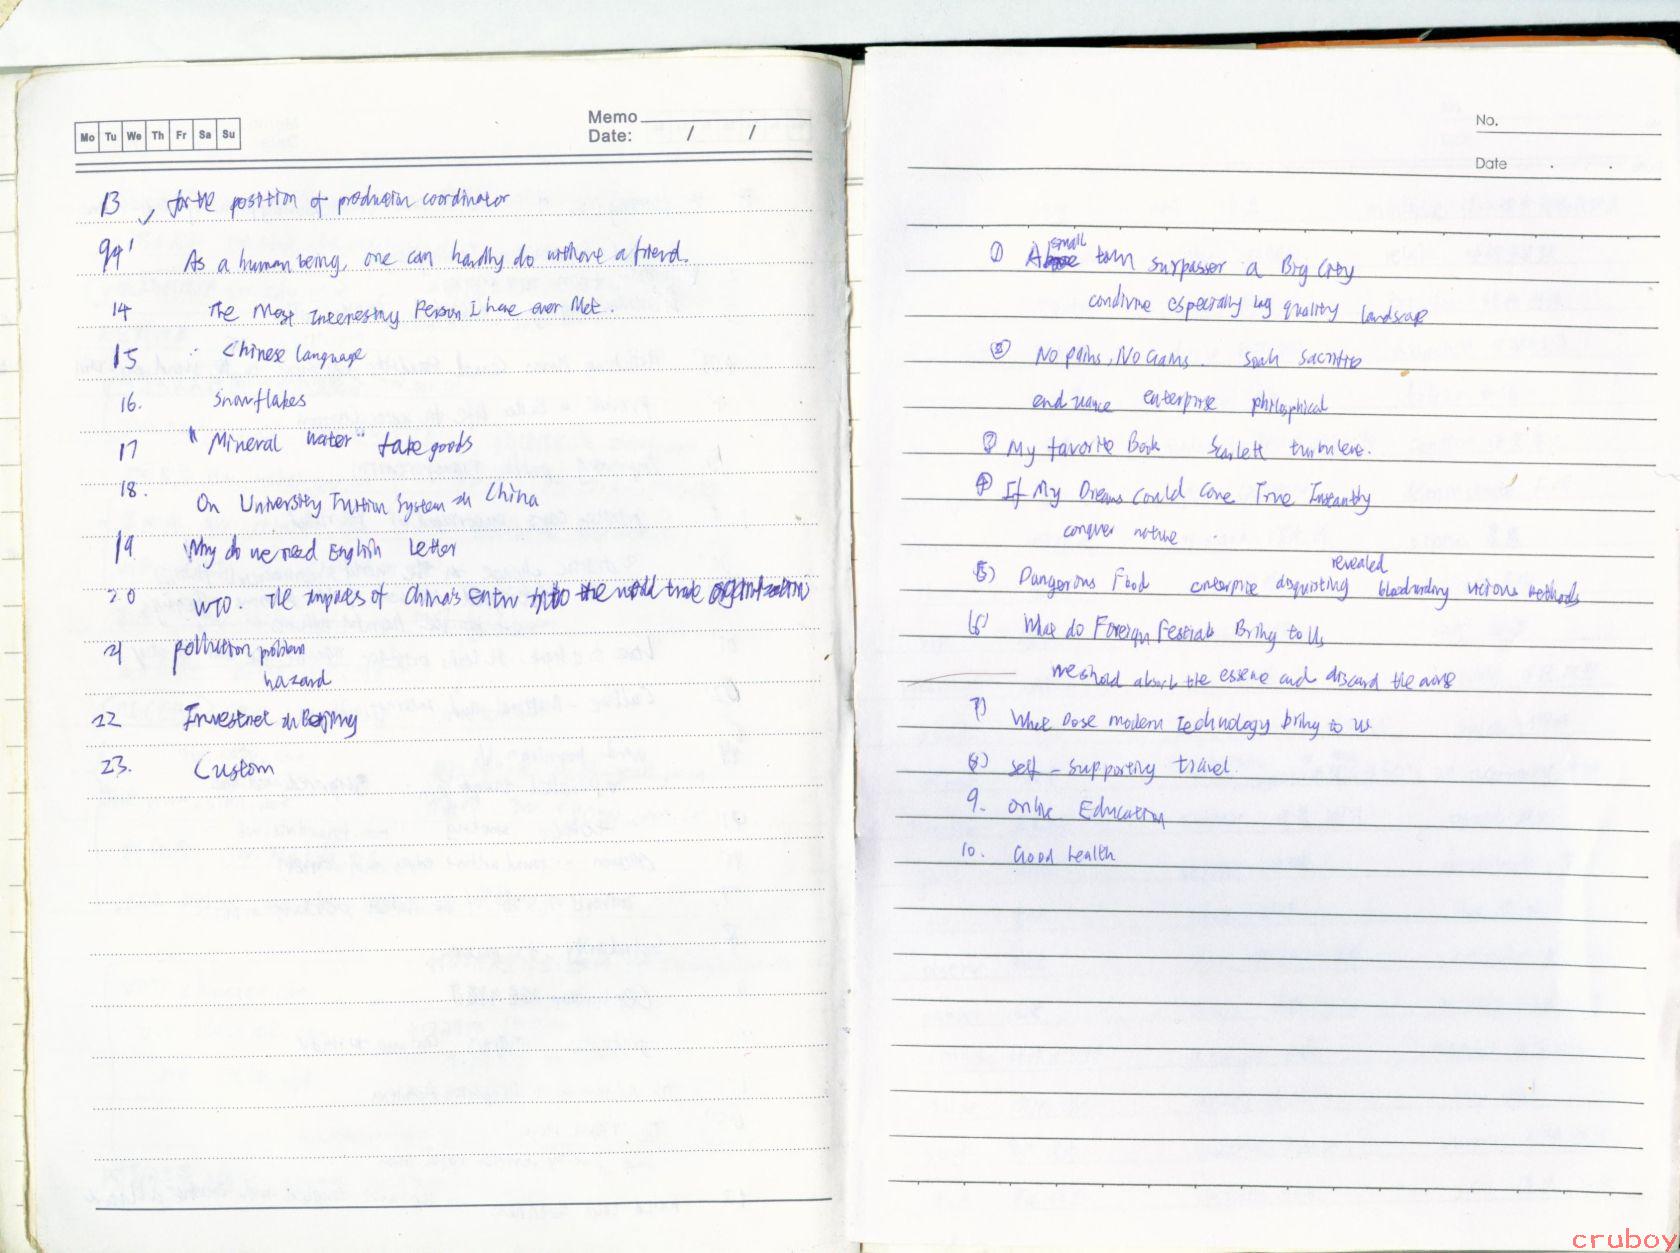 Mo Tu We Th Fr Sa Su
Memo
Date: / /
13 for the position of production coordinator
94' As a human being, one can hardly do without a friend.
14 The Most Interesting Person I have ever Met.
15 Chinese language
16. Snowflakes
17 "Mineral water" fake goods
18. On University Tuition System in China
19 Why do we need English Letter
20 WTO. The impacts of China's entry into the world trade organization
21 pollution problem
hazard
22 Investnet in Beijing
23. Custom
No.
Date . .
① A small town surpasser a Big City
especially quality landscape
② No pains, No Gains.
enterprise philosphical
③ My favorite Book Scarlett
④ If My Dreams Could Come True Instantly
conquer nature
revealed
5) Dangerous Food enterprise disgusting vicious methods
(6) What do Foreign Festivals Bring to Us
absorb the essene and discard the
7) What Dose modern Technology bring to us
(8) self-supporting travel.
9. online Education
10. Good health
cruboy